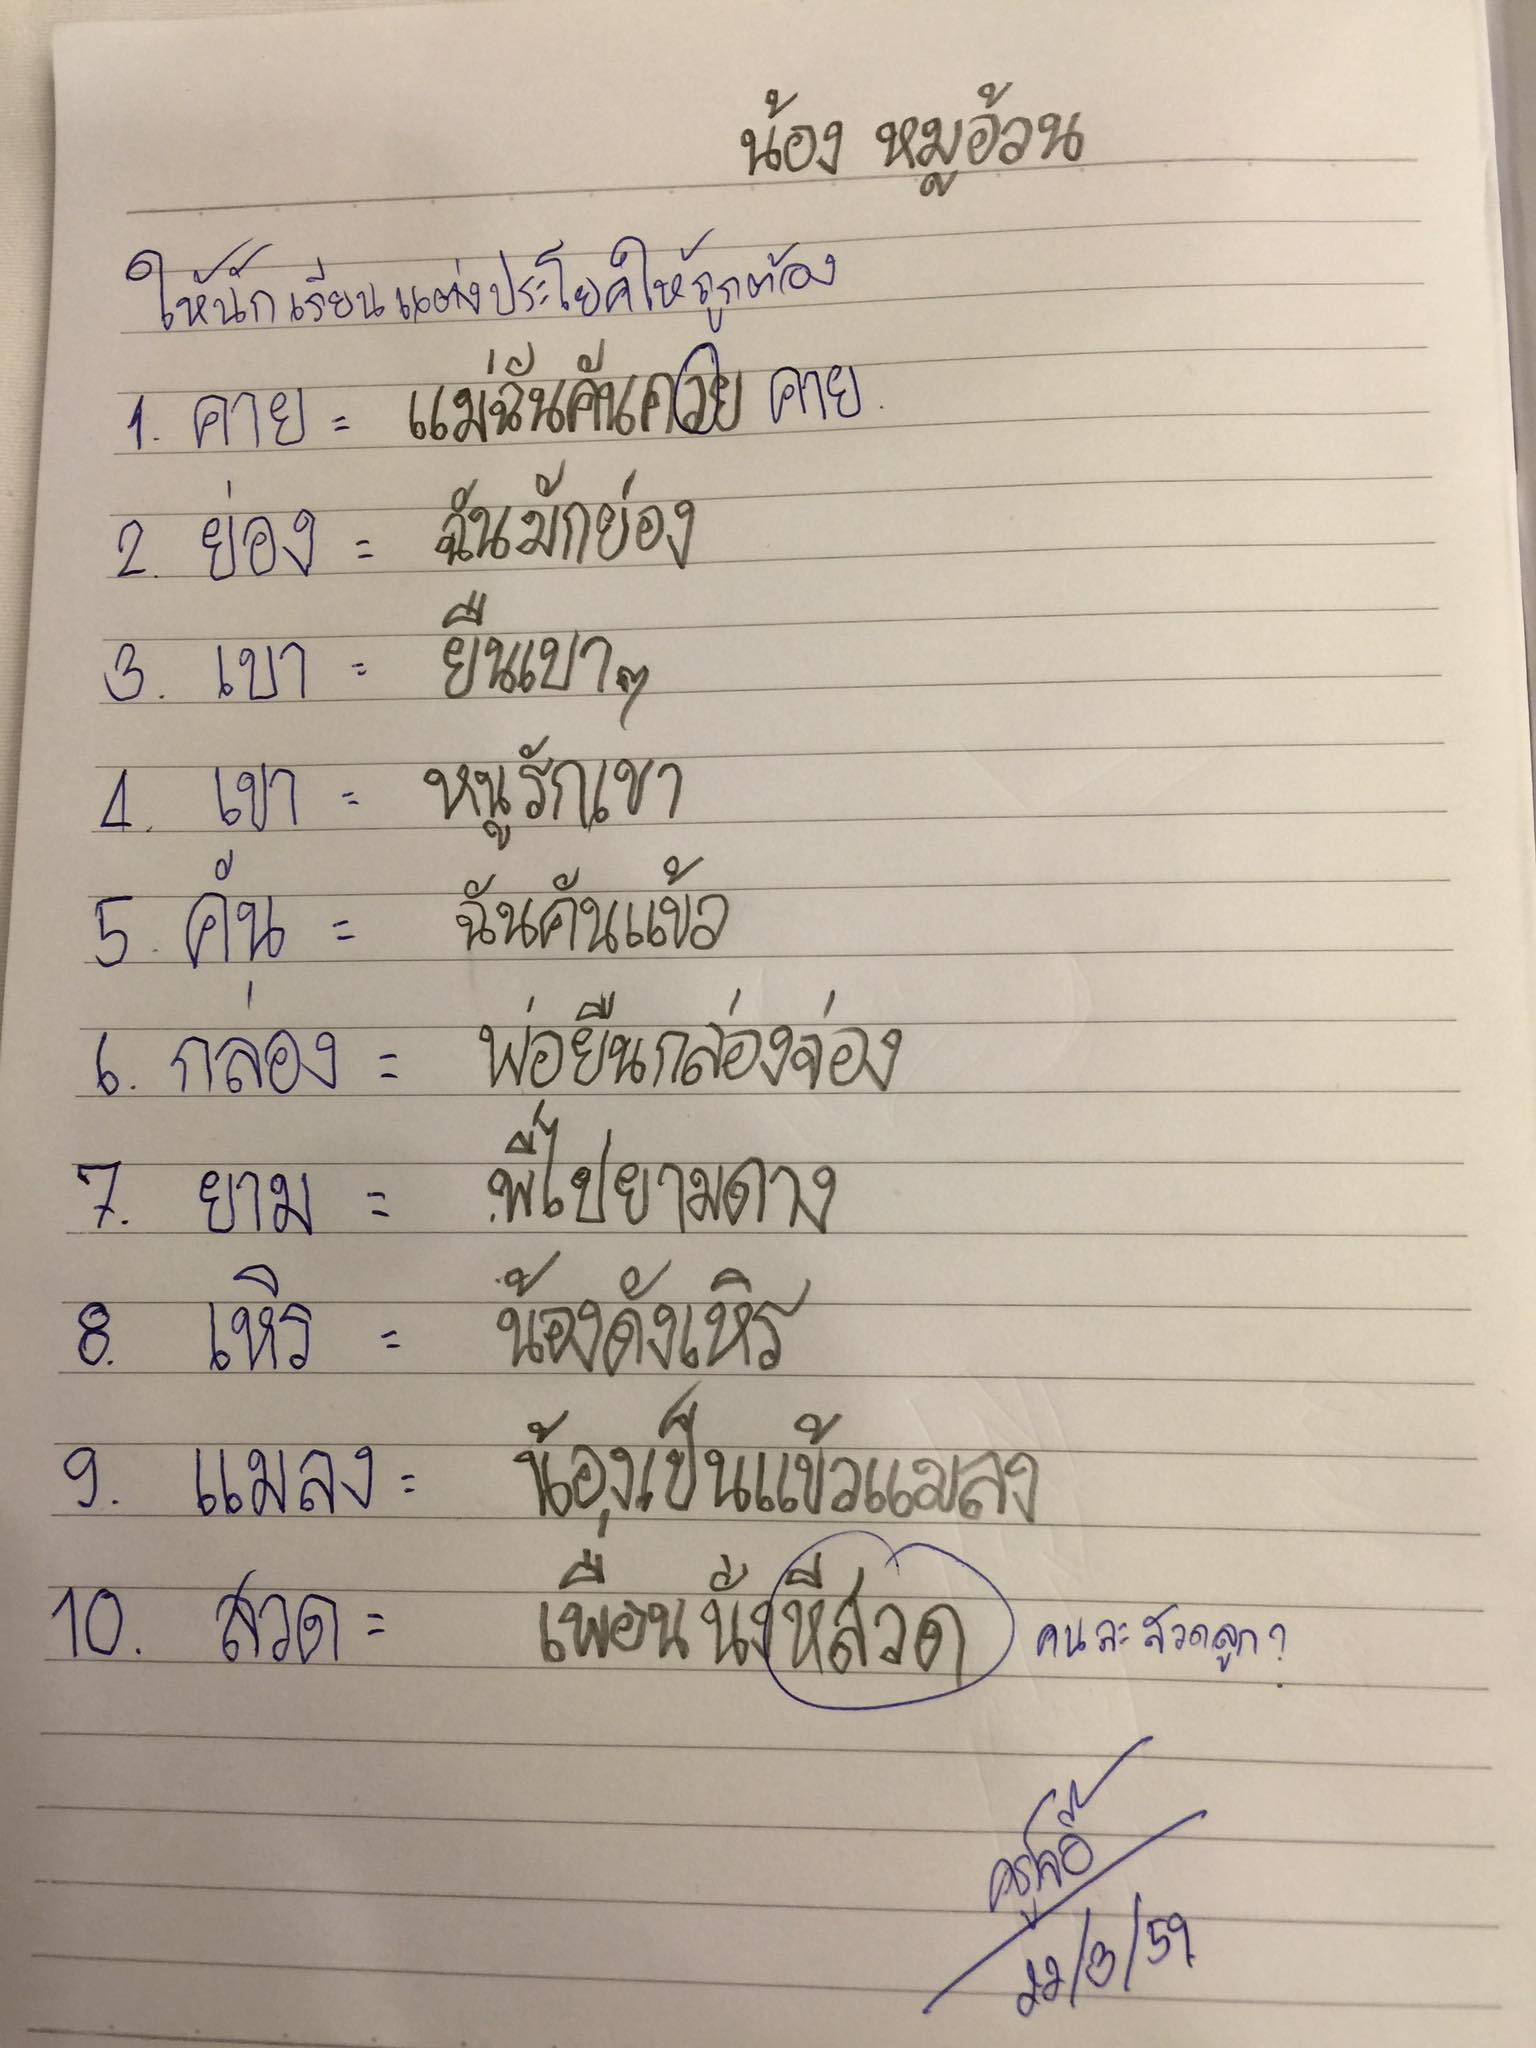 น้อง หมูอ้วน
ให้นักเรียนแต่งประโยคให้ถูกต้อง
1. คาย = แม่ฉันคันควย คาย.
2. ย่อง = ฉันมักย่อง
3. เบา = ยืนเบาๆ
4. เขา = หนูรักเขา
5. คัน = ฉันคันแข้ว
6. กล่อง = พ่อยืนกล่องจ่อง
7. ยาม = พี่ไปยามดาง
8. เหิร = น้องดังเหิร
9. แมลง = น้องเป็นแข้วแมลง
10. สวด = เพื่อนนั่งหีสวด คนละสวดลูก?
22/3/59